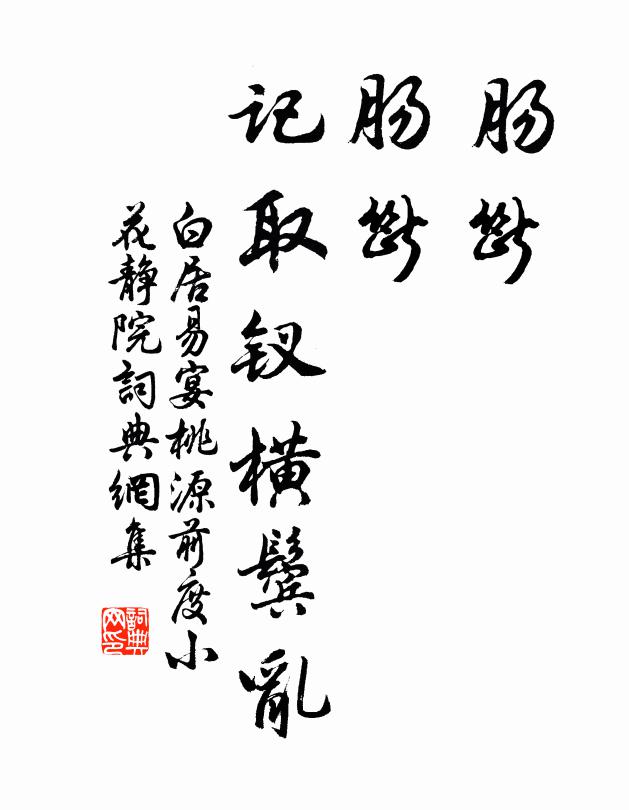 肠断
肠断
记取钗横鬓亂
白居易宴桃源前度小
花静院詞典網集
詞典
网印